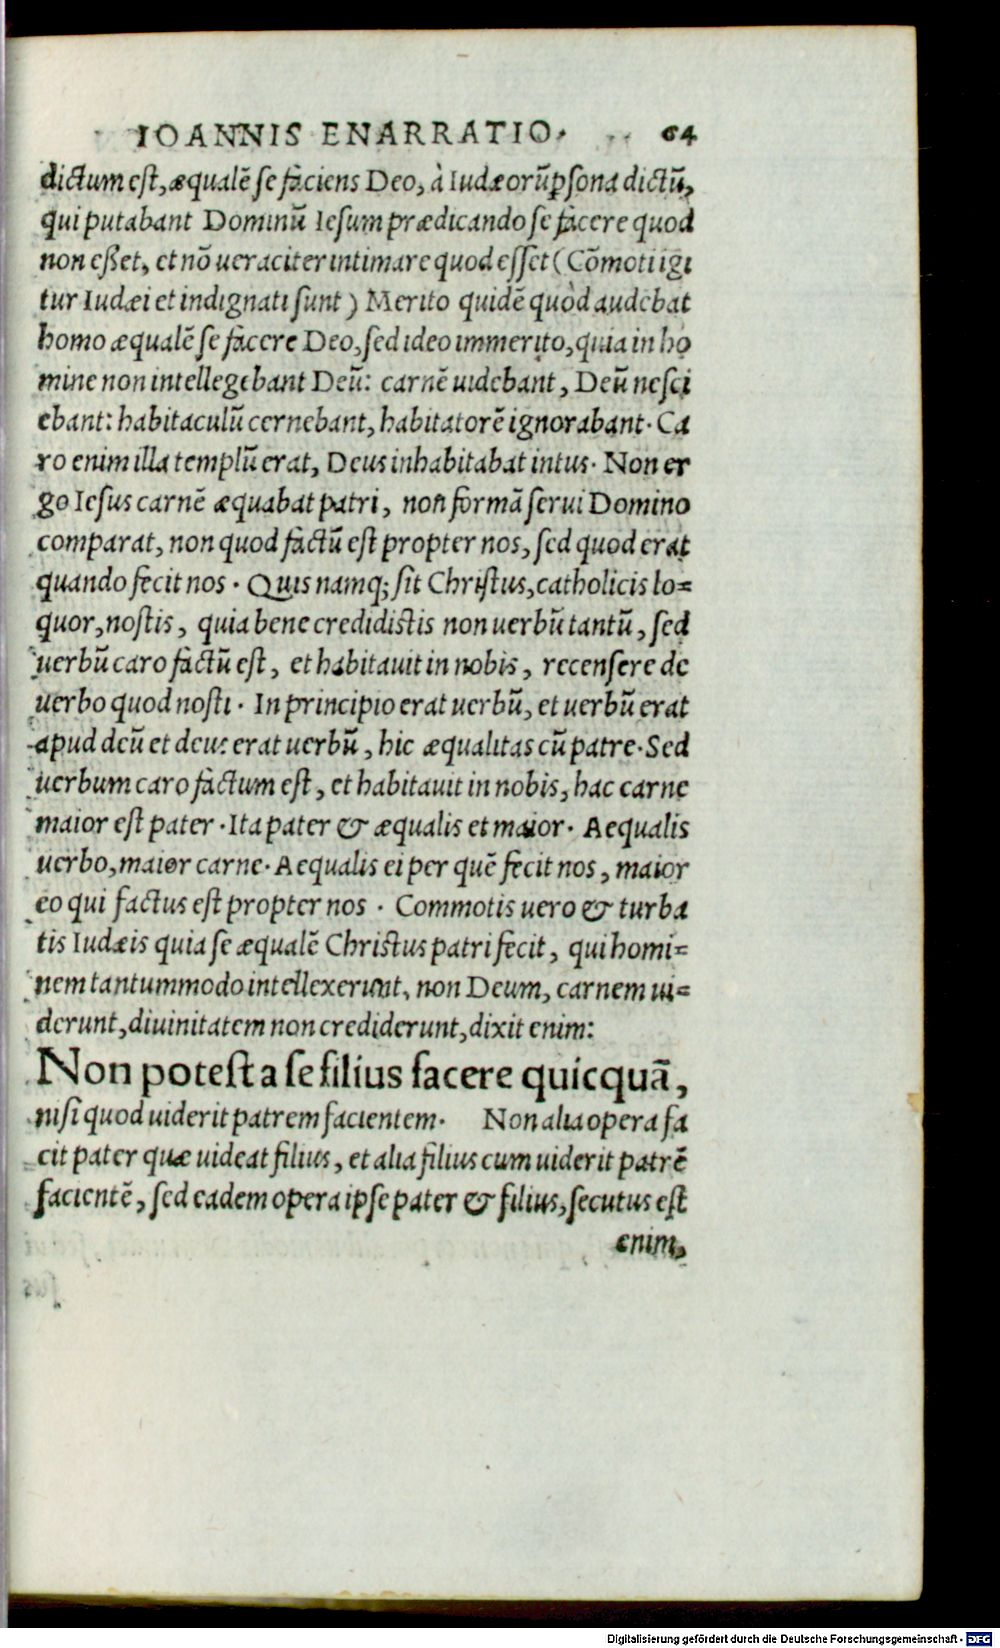 IOANNIS ENARRATIO. 64
dictum est, æqualē se faciens Deo, à Iudæorū ꝑsona dictū,
qui putabant Dominū Iesum prædicando se facere quod
non eßet, et nō ueraciter intimare quod esset (Cōmoti igi
tur Iudæi et indignati sunt) Merito quidē quòd audebat
homo æqualē se facere Deo, sed ideo immerito, quia in ho
mine non intellegebant Deū: carnē uidebant, Deū nesci
ebant: habitaculū cernebant, habitatorē ignorabant. Ca
ro enim illa templū erat, Deus inhabitabat intus. Non er
go Iesus carnē æquabat patri, non formā serui Domino
comparat, non quod factū est propter nos, sed quod erat
quando fecit nos. Quis namq; sit Christus, catholicis lo=
quor, nostis, quia bene credidistis non uerbū tantū, sed
uerbū caro factū est, et habitauit in nobis, recensere de
uerbo quod nosti. In principio erat uerbū, et uerbū erat
apud deū et deus erat uerbū, hic æqualitas cū patre. Sed
uerbum caro factum est, et habitauit in nobis, hac carne
maior est pater. Ita pater & æqualis et maior. Aequalis
uerbo, maior carne. Aequalis ei per quē fecit nos, maior
eo qui factus est propter nos. Commotis uero & turba
tis Iudæis quia se æqualē Christus patri fecit, qui homi=
nem tantummodo intellexerunt, non Deum, carnem ui=
derunt, diuinitatem non crediderunt, dixit enim:
Non potest a se filius facere quicquā,
nisi quod uiderit patrem facientem. Non alia opera fa
cit pater quæ uideat filius, et alia filius cum uiderit patrē
facientē, sed eadem opera ipse pater & filius, secutus est
enim,
Digitalisierung gefördert durch die Deutsche Forschungsgemeinschaft - DFG